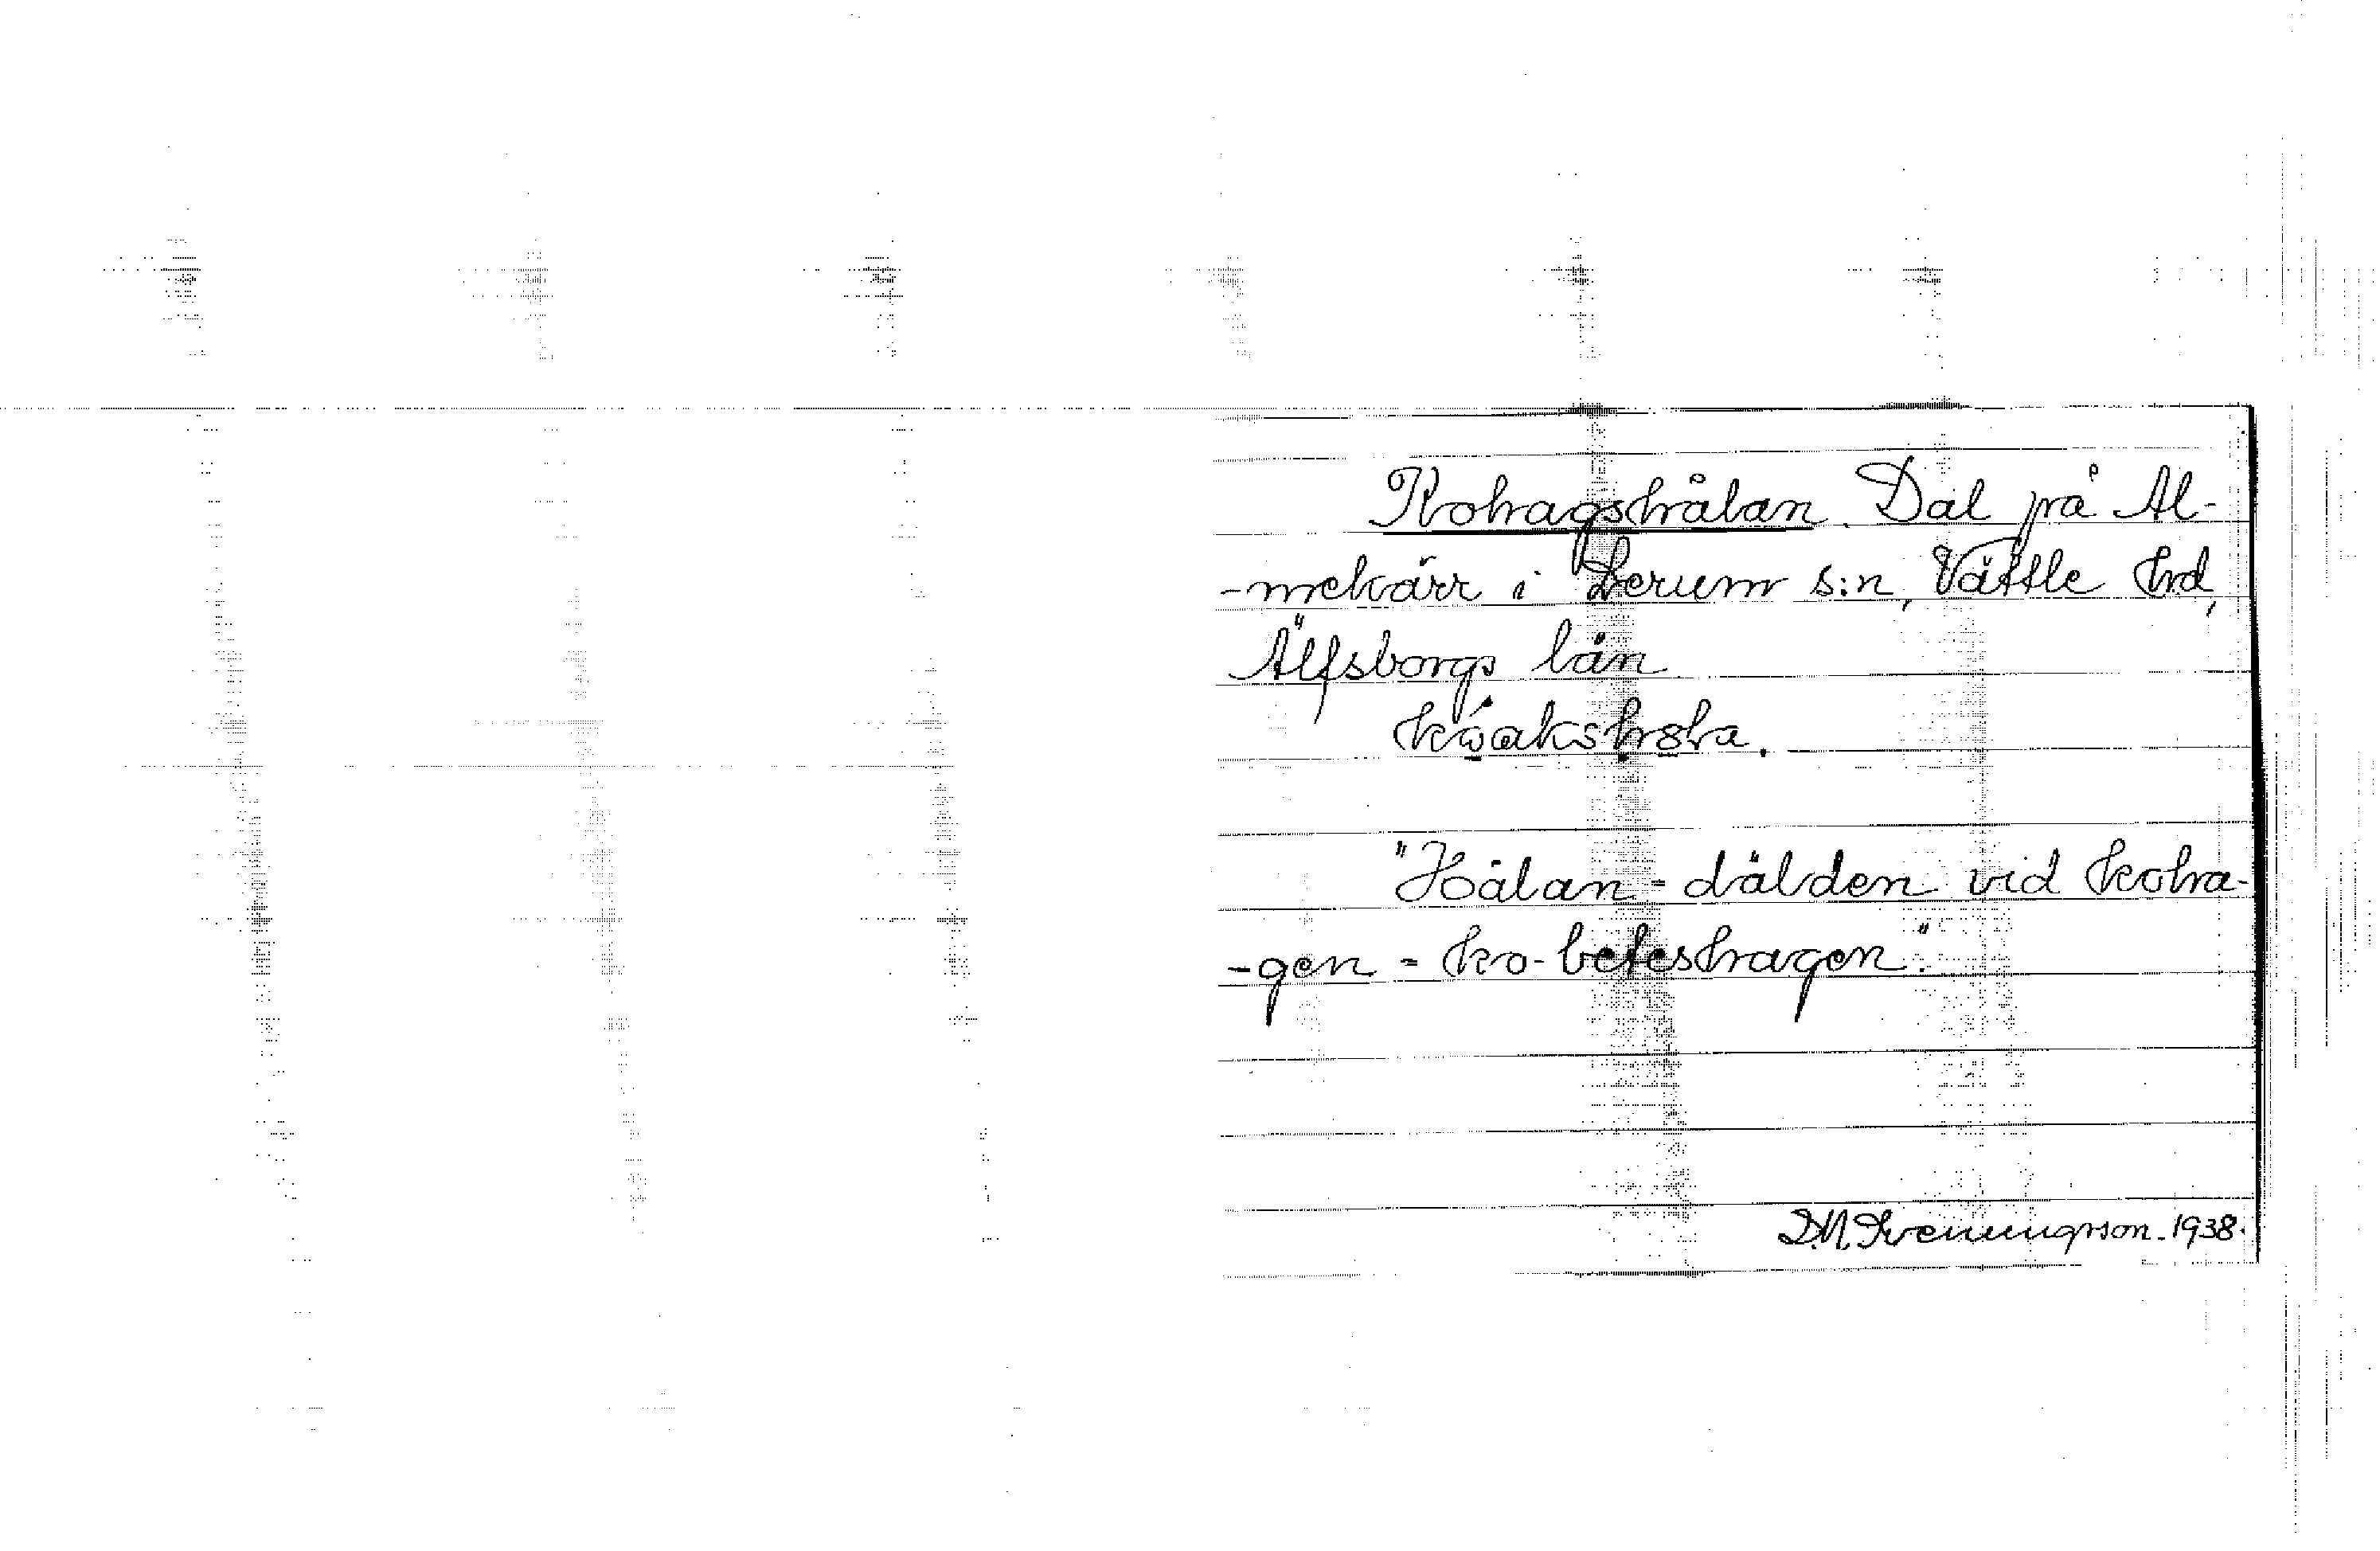 Kohagshålan. Dal på Al-
-mekärr i Lerum s:n, Vättle hd,
Älfsborgs län
"Hålan - dälden vid koha-
-gen = ko-beteshagen".
D.N. Svenungsson. 1938.